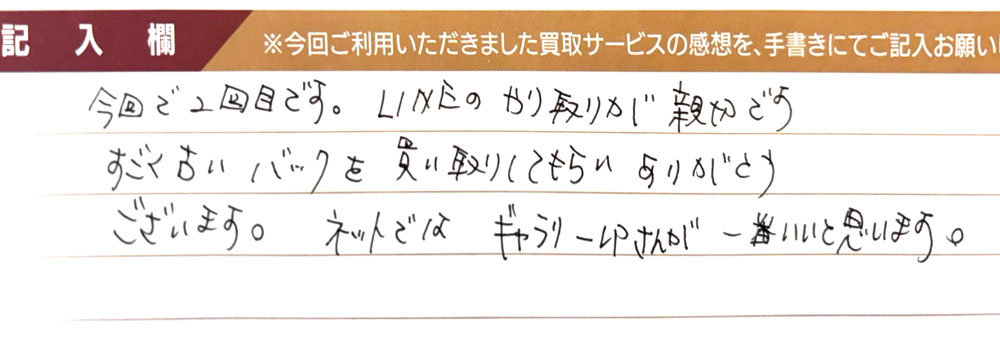 記入欄 ※今回ご利用いただきました買取サービスの感想を、手書きにてご記入お願いし
今回で2回目です。LINEのやり取りが親切です
すごく古いバックを買い取りしてもらいありがとう
ございます。ネットではギャラリーさんが一番いいと思います。